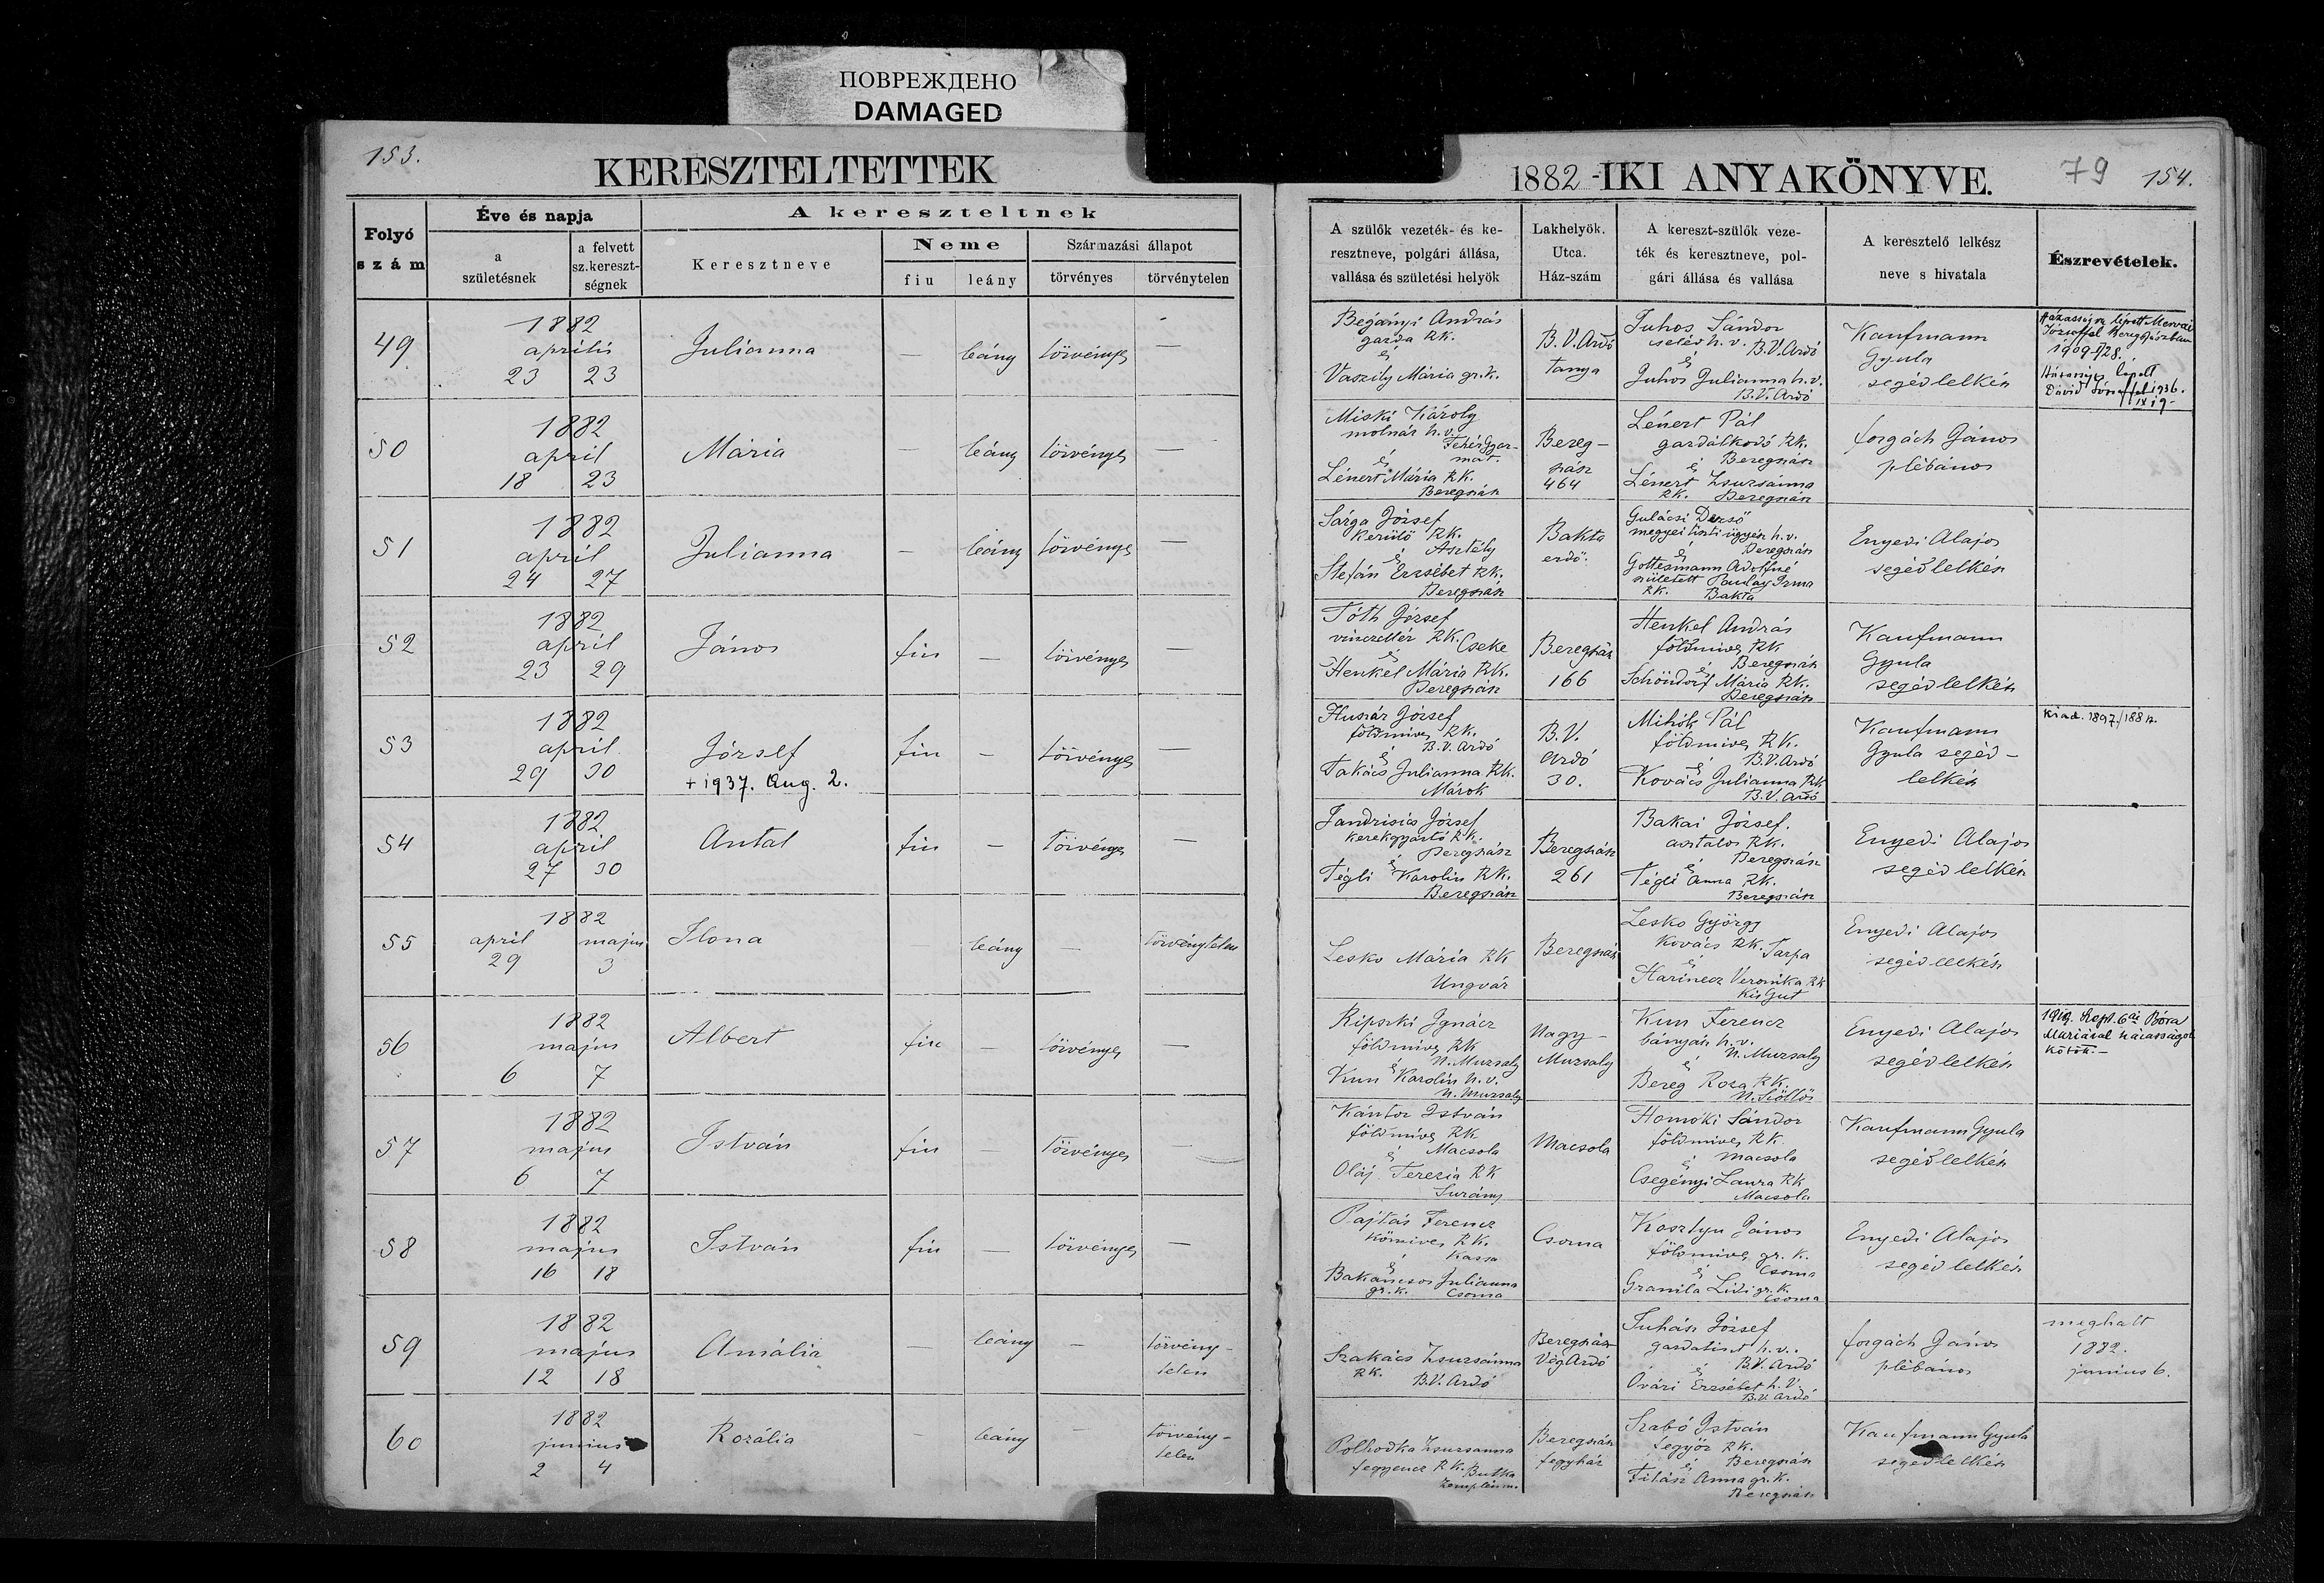 ПОВРЕЖДЕНО
DAMAGED
153.
KERESZTELTETTEK
Folyó
szám
Éve és napja
a
születésnek
a felvett
sz.kereszt-
ségnek
A kereszteltnek
Keresztneve
Neme
fiu
leány
Származási állapot
törvényes
törvénytelen
1882-IKI ANYAKÖNYVE.
79
154.
A szülők vezeték- és ke-
resztneve, polgári állása,
vallása és születési helyök
Lakhelyök.
Utca.
Ház-szám
A kereszt-szülők veze-
ték és keresztneve, pol-
gári állása és vallása
A keresztelő lelkész
neve s hivatala
Észrevételek.
49
1882
április
23 23
Julianna
leány törvényes —
Begányi András
gazda RK.
és
Vaszily Mária gr.k.
B.V. Ardó
Tanya
Juhos Sándor
cseléd h.v. B.V. Ardó
és
Juhos Julianna h.v.
B.V. Ardó
Kaufmann
Gyula
segédlelkész
Józseffel Beregszászban
Dávid Józseffel 1936.
50
1882
april
18 23
Mária
— leány törvényes —
Miski Károly
molnár h.v.
Fehérgyar-
mat.
és
Lénert Mária RK.
Beregszász
Bereg-
szász
464
Lénert Pál
gazdálkodó RK.
és Beregszász
Lénert Zsuzsanna
RK. Beregszász
Forgách János
plébános
51
1882
april
24 27
Julianna
— leány törvényes —
Sárga József
kerülő RK.
és Asztély
Stefán Erzsébet RK.
Beregszász
Bakta
erdő.
Gulácsi Dezső
megyei tiszti ügyész h.v.
és Beregszász
Gottesmann Adolfné
született Pauláy Irma
RK. Bakta
Enyedi Alajos
segédlelkész
52
1882
april
23 29
János
fiu — törvényes —
Tóth József
vinczellér RK. Cseke
és
Henkel Mária RK.
Beregszász
Beregszász
166
Henkel András
földmives RK
és Beregszász
Schöndorf Mária RK.
Beregszász
Kaufmann
Gyula
segédlelkész
53
1882
april
29 30
József
+ 1937. Aug. 2.
fiu — törvényes —
Huszár József
földmives RK.
és B.V. Ardó
Takács Julianna RK.
Márok
B.V.
Ardó
30.
Mihók Pál
földmives RK.
és B.V. Ardó
Kovács Julianna RK
B.V. Ardó
Kaufmann
Gyula segéd-
lelkész
Kiad. 1897./188 n.
54
1882
april
27 30
Antal
fiu — törvényes —
Jandrisics József
kerekgyártó RK.
és Beregszász
Tégli Karolin RK.
Beregszász
Beregszász
261
Bakai József.
asztalos RK.
és Beregszász
Tégli Anna RK.
Beregszász
Enyedi Alajos
segédlelkész
55
1882
april majus
29 3
Ilona
leány — törvénytelen
Lesko Mária RK
Ungvár
Beregszász
Lesko György
Kovács RK. Tarpa
és
Harinecz Veronika RK
Kis Gut
Enyedi Alajos
segédlelkész
56
1882
majus
6 7
Albert
fiu — törvényes —
Ripszki Ignácz
földmives RK
és N. Muzsaly
Kun Karolin h.v.
N. Muzsaly
Nagy-
Muzsaly
Kun Ferencz
bányász h.v.
és N. Muzsaly
Bereg Roza RK.
N. Szöllös
Enyedi Alajos
segédlelkész
Sept. 6án Bóra
Máriával házasságot
kötött.—
57
1882
majus
6 7
István
fiu — törvényes —
Kántor István
földmives RK
és Macsola
Oláj Terezia RK
Surány
Macsola
Homoki Sándor
földmives RK.
és Macsola
Csegényi Laura RK
Macsola
Kaufmann Gyula
segédlelkész
58
1882
majus
16 18
István
fiu — törvényes —
Pajtás Ferencz
kömives RK.
és Kassa
Bakancsos Julianna
gr.k. Csoma
Csoma
Kosztyu János
földmives gr. k.
és Csoma
Granila Lidi gr. K.
Csoma
Enyedi Alajos
segédlelkész
59
1882
majus
12 18
Amália
— leány — törvény-
telen
Szakács Zsuzsánna
RK. B.V. Ardó
Beregszász
Végardó
Juhász József
gazdatiszt h.v.
és B.V. Ardó
Óvári Erzsébet h.v.
B.V. Ardó
Forgách János
plébános
meghalt
1882.
junius 6.
60
1882
junius
2 4
Rozália
— leány — törvény-
telen
Polhodka Zsuzsanna
fegyencz RK. Butka
Zemplénm.
Beregszász
fegyház
Szabó István
fegyőr RK.
és Beregszász
Filász Anna gr.K.
Beregszász
Kaufmann Gyula
segédlelkész